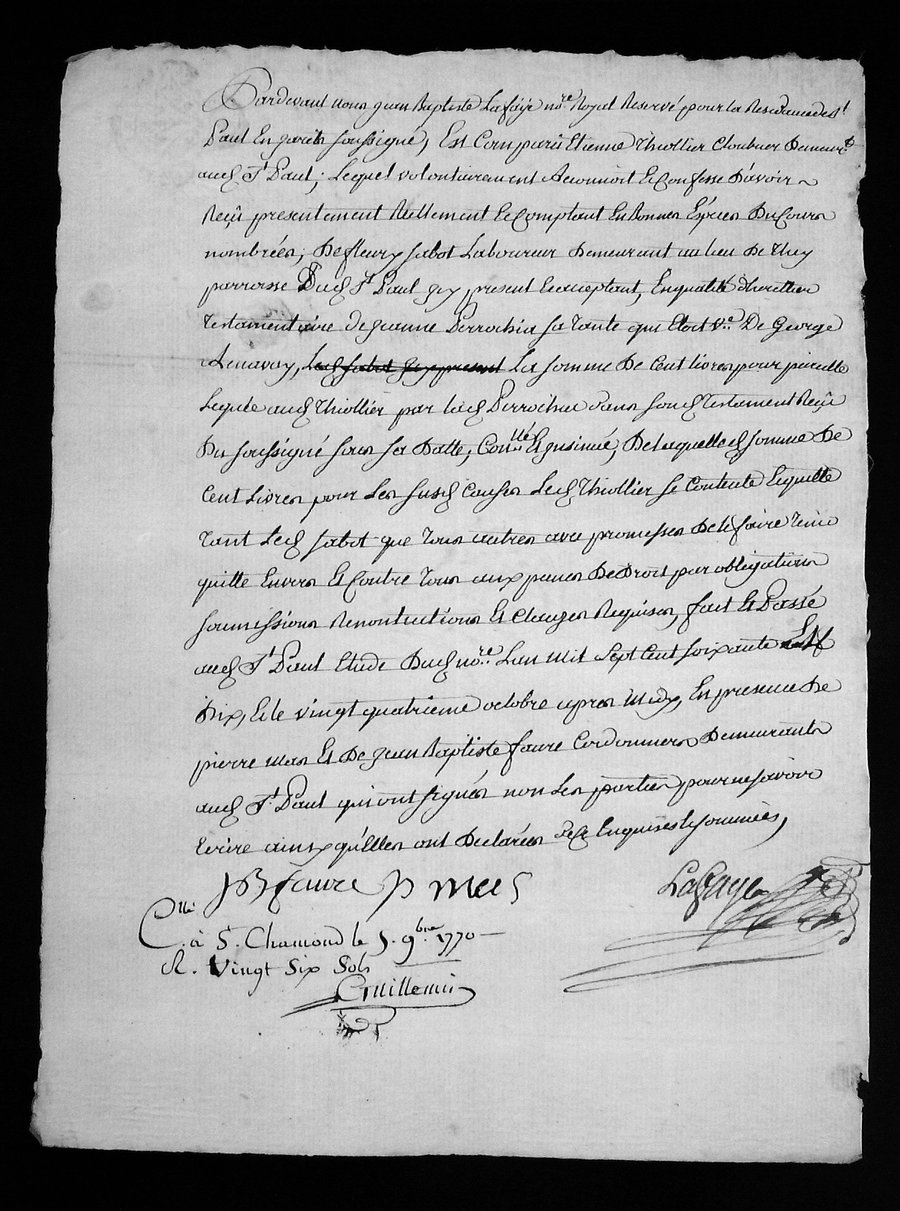 Pardevant nous jean Baptiste Lafaÿe no.re Royal Reservé pour la Residance de st
Paul En jarêts soussigné, Est Comparû Etienne Thiollier Cloutier Demeur.t
aud St Paul; Lequel volontairement Reconnoit Et Confesse D'avoir
Reçû presentement Réellement Et Comptant En Bonnes Espèces Du Cours
nombrées, De fleury sabot Laboureur Demeurant au lieu De They
parroisse Dud St Paul icy present Et acceptant, En qualité d'heritier
Testamentaire de jeanne Perrochia sa tante qui Etoit ve De George
Lesd sabot icy present La somme De Cent livres pour pareille
Leguée aud Thiollier par lad Perrochia dans son Testament Reçû
Du soussigné sous sa Datte, Con.llé Et jnsinué, De laquelle d somme De
Cent Livres pour Les susd Causes Led Thiollier se Contente Et quitte
tant Led sabot que tous autres avec promesses De le faire tenir
quitte Envers Et Contre tous aux peines De Droit par obligations
soumissions Renontiations Et Clauses Requises, fait Et Passé
aud St Paul Etude Dud no.re L'an Mil Sept Cent soixante Et
Dix, Et le vingt quatrieme octobre apres Midy, En presence De
pierre mas Et De jean Baptiste faure Cordonniers Demeurants
aud St Paul qui ont signés non Les parties pour ne savoir
Ecrire ainsy qu'Elles ont Declarées De ce Enquises Et sommées,
JB faure p mas Lafaye
C.llé à St. Chamond le 5. 9bre. 1770
R. Vingt Six Sols
Guillemin